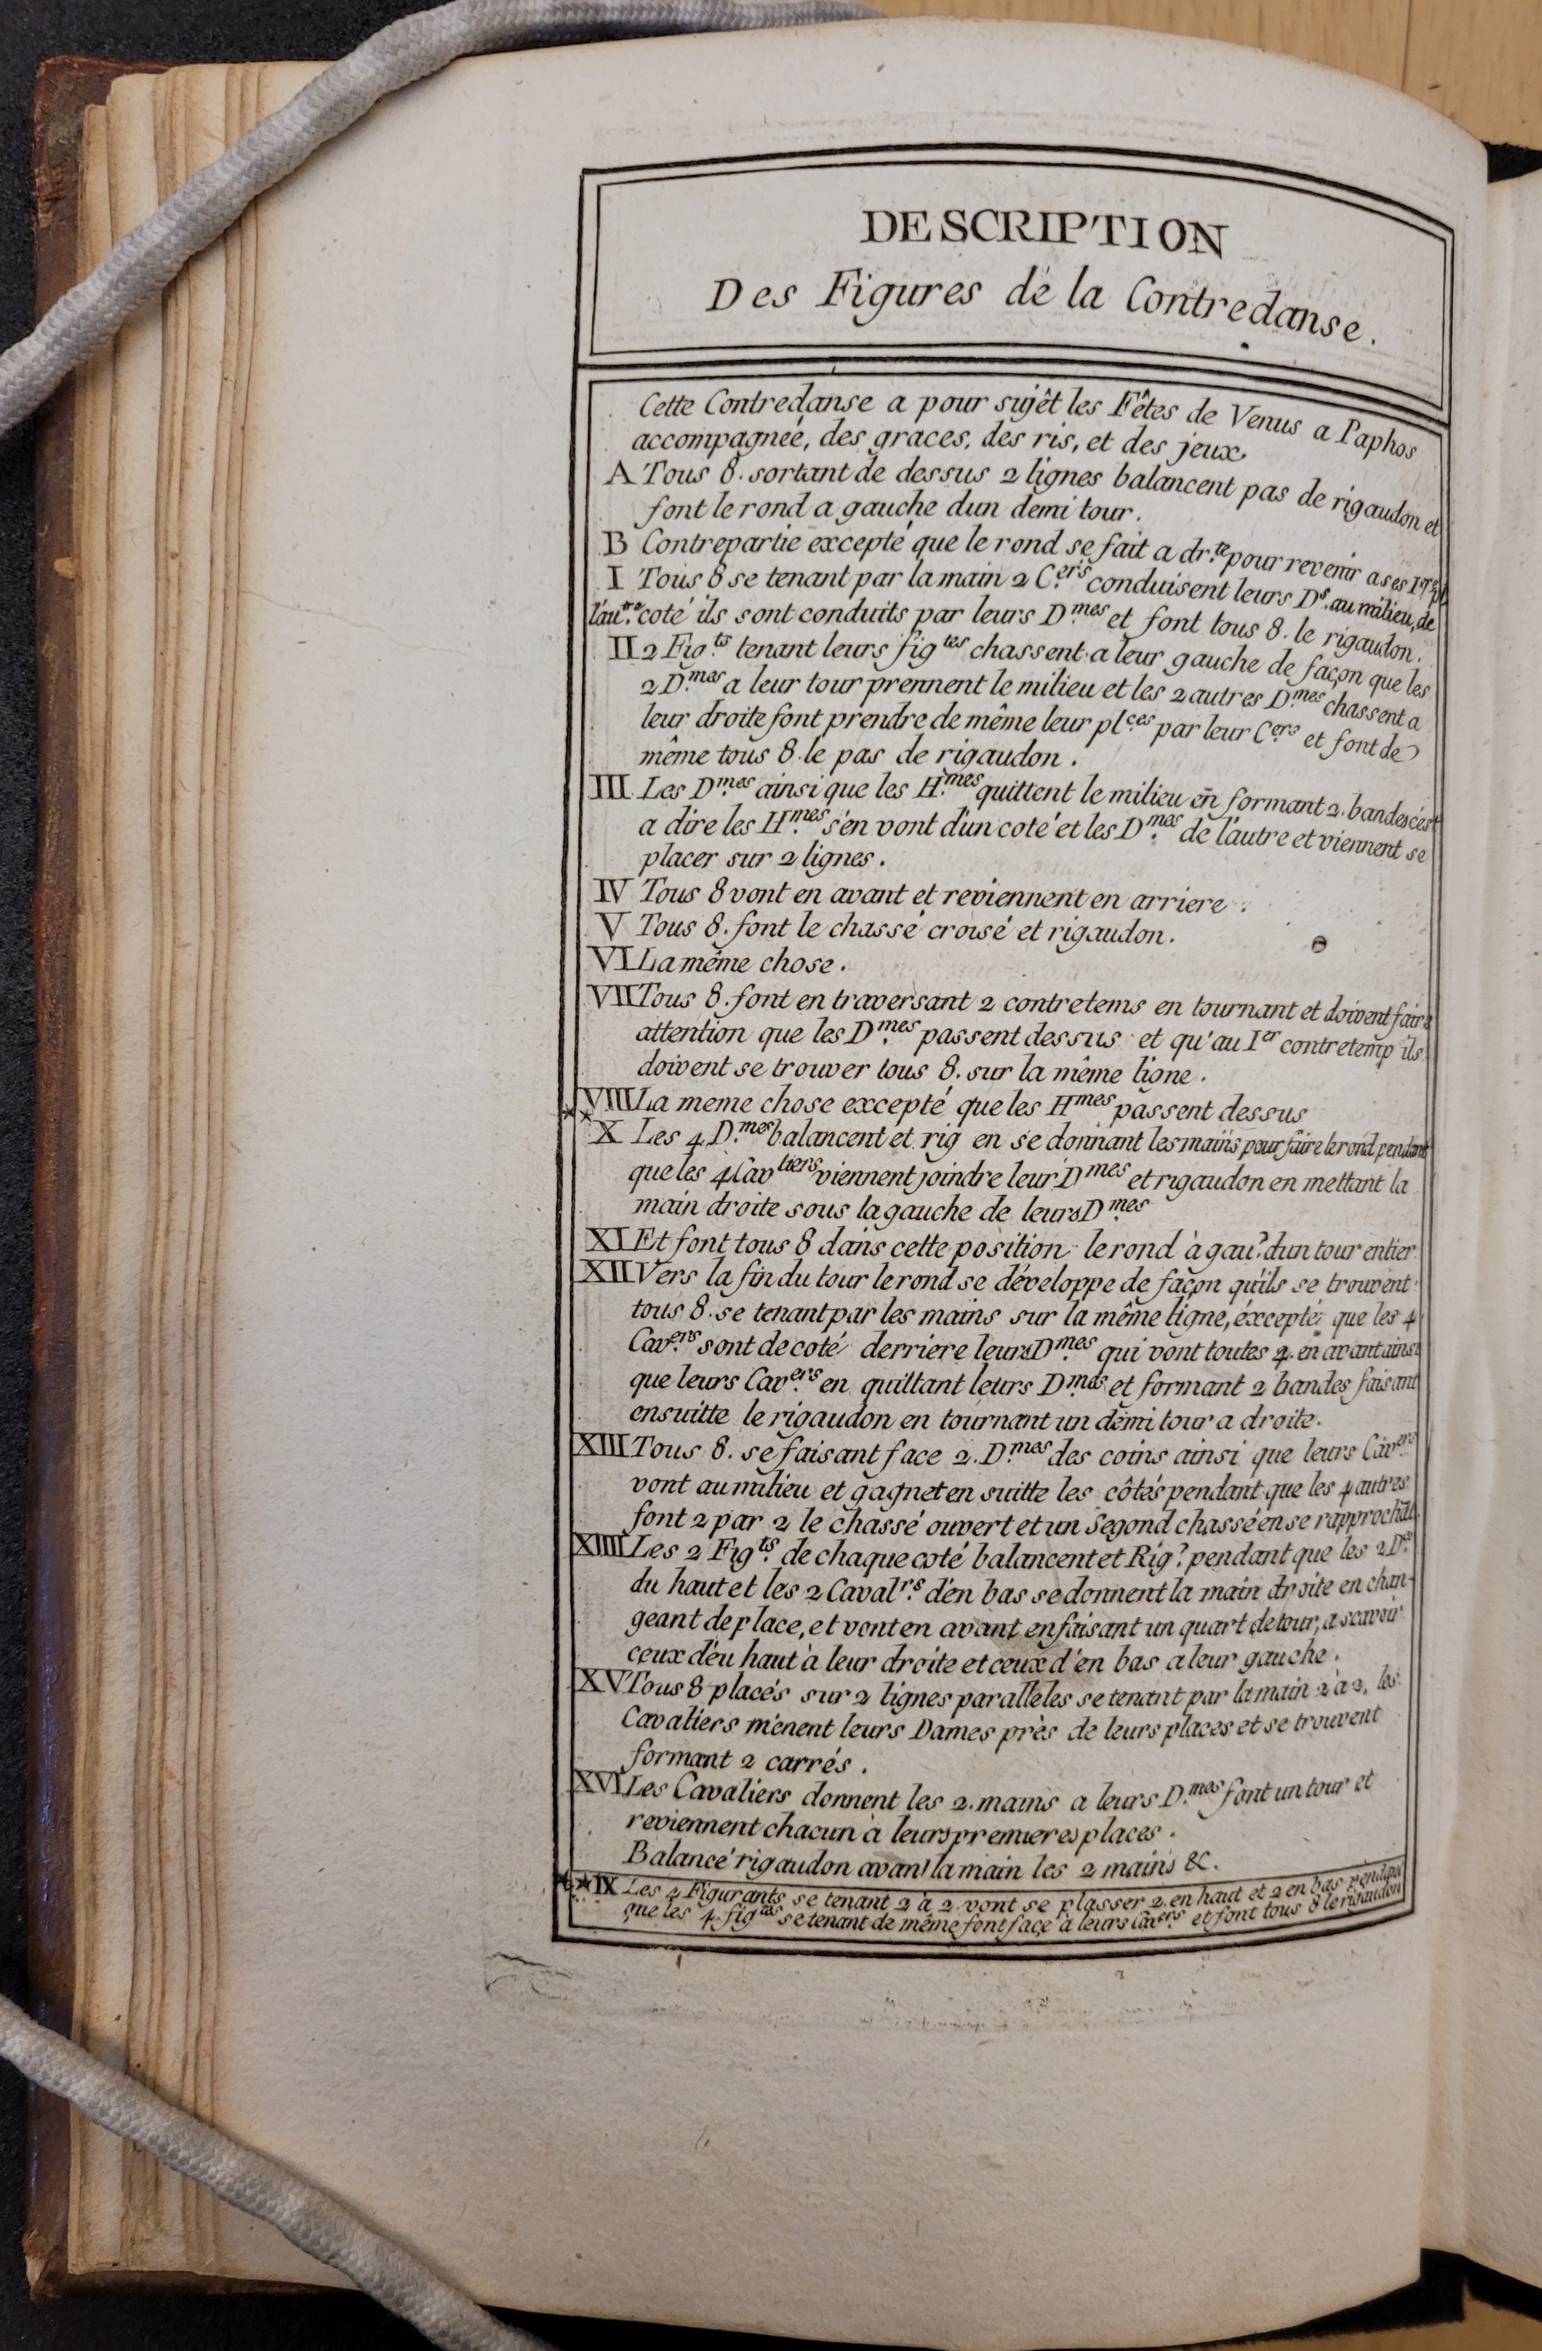 DESCRIPTION
Des Figures de la Contredanse.
Cette Contredanse a pour sujêt les Fêtes de Venus a Paphos
accompagnée, des graces, des ris, et des jeux.
A Tous 8. sortant de dessus 2 lignes balancent pas de rigaudon et
font le rond a gauche dun demi tour.
B Contrepartie excepté que le rond se fait a dr.te pour revenir a ses
I Tous 8 se tenant par la main 2 C.ers conduisent leurs Ds. au milieu, de
l'au.tre coté ils sont conduits par leurs D.mes et font tous 8. le rigaudon.
II 2 Fig.ts tenant leurs fig.tes chassent a leur gauche de façon que les
2 D.mes a leur tour prennent le milieu et les 2 autres D.mes chassent a
leur droite font prendre de même leur pl.ces par leur C.ers et font de
même tous 8. le pas de rigaudon.
III Les D.mes ainsi que les H.mes quittent le milieu en formant 2. bandes c'est
a dire les H.mes s'en vont d'un coté et les D.mes de l'autre et viennent se
placer sur 2 lignes.
IV Tous 8 vont en avant et reviennent en arriere.
V Tous 8. font le chassé croisé et rigaudon.
VI La même chose.
VII Tous 8. font en traversant 2 contretems en tournant et doivent faire
attention que les D.mes passent dessus et qu'au Ier contretemp ils
doivent se trouver tous 8. sur la même ligne.
VIII La meme chose excepté que les Hmes passent dessus
** X Les 4 D.mes balancent et rig en se donnant les mains pour faire le rond pendant
que les 4 Cavliers viennent joindre leur Dmes et rigaudon en mettant la
main droite sous la gauche de leurs D.mes
XI Et font tous 8 dans cette position le rond à gau? dun tour entier
XII Vers la fin du tour le rond se développe de façon qu'ils se trouvent
tous 8. se tenant par les mains sur la même ligne, éxcepté que les 4
Cav.ers sont de coté derriere leurs D.mes qui vont toutes 4. en avant ainsi
que leurs Cav.ers en quittant leurs D.mes et formant 2 bandes faisant
ensuitte le rigaudon en tournant un demi tour a droite.
XIII Tous 8. se faisant face 2. D.mes des coins ainsi que leurs Cavers
vont au milieu et gagnet en suitte les côtés pendant que les 4 autres
font 2 par 2 le chassé ouvert et un Segond chassé en se rapprochat
XIIII Les 2 Fig.ts de chaque coté balancent et Rig? pendant que les 2 D.es
du haut et les 2 Caval.rs d'en bas se donnent la main droite en chan-
geant de place, et vont en avant en faisant un quart de tour, a scavoir
ceux d'eu haut à leur droite et ceux d'en bas a leur gauche.
XV Tous 8 placés sur 2 lignes paralleles se tenant par la main 2 à 2, les
Cavaliers mènent leurs Dames près de leurs places et se trouvent
formant 2 carrés.
XVI Les Cavaliers donnent les 2. mains a leurs D.mes font un tour et
reviennent chacun à leurs premieres places.
Balancé rigaudon avant la main les 2 mains &c.
** IX Les 4 Figurants se tenant 2 à 2. vont se plasser 2. en haut et 2 en bas pendant
que les 4. figtes se tenant de même font face à leurs Cavers et font tous 8 le rigaudon